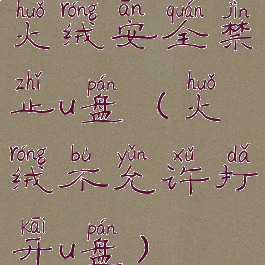 huǒ róng ān quán jìn
火绒安全禁
zhǐ pán huǒ
止u盘（火
róng bù yǔn xǔ dǎ
绒不允许打
kāi pán
开u盘）